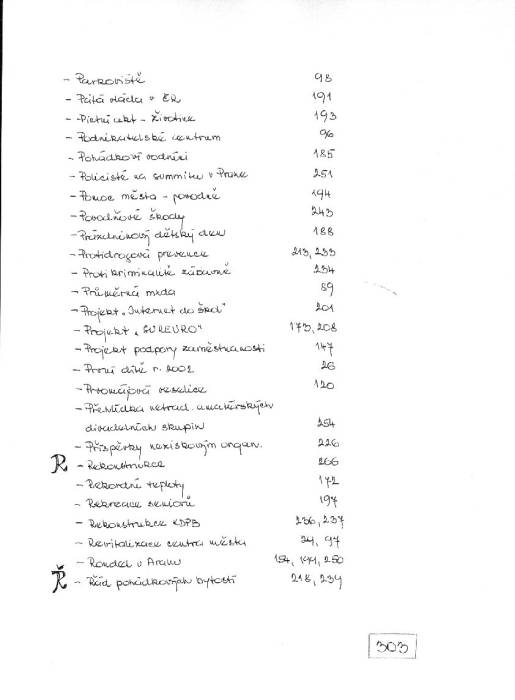 - Parkoviště 98
- Pátá vláda v ČR 191
- Pietní akt - Životice 193
- Podnikatelské centrum 96
- Pohádkoví vodníci 185
- Policisté na summitu v Praze 251
- Pomoc města - povodně 194
- Povodňové škody 243
- Prázdninový dětský den 188
- Protidrogová prevence 213, 233
- Proti kriminalitě zábavně 234
- Průměrná mzda 89
- Projekt „Internet do škol" 201
- Projekt „SUREURO" 173, 208
- Projekt podpory zaměstnanosti 147
- První dítě r. 2002 26
- Prvomájová veselice 120
- Přehlídka netrad. amatérských
divadelních skupin 254
- Příspěvky neziskovým organ. 226
R - Rekonstrukce 266
- Rekordní teploty 172
- Rekreace seniorů 197
- Rekonstrukce KDPB 236, 237
- Revitalizace centra města 24, 97
- Rondel v Aranu 154, 250
Ř - Řád pohádkových bytostí 218, 239
303